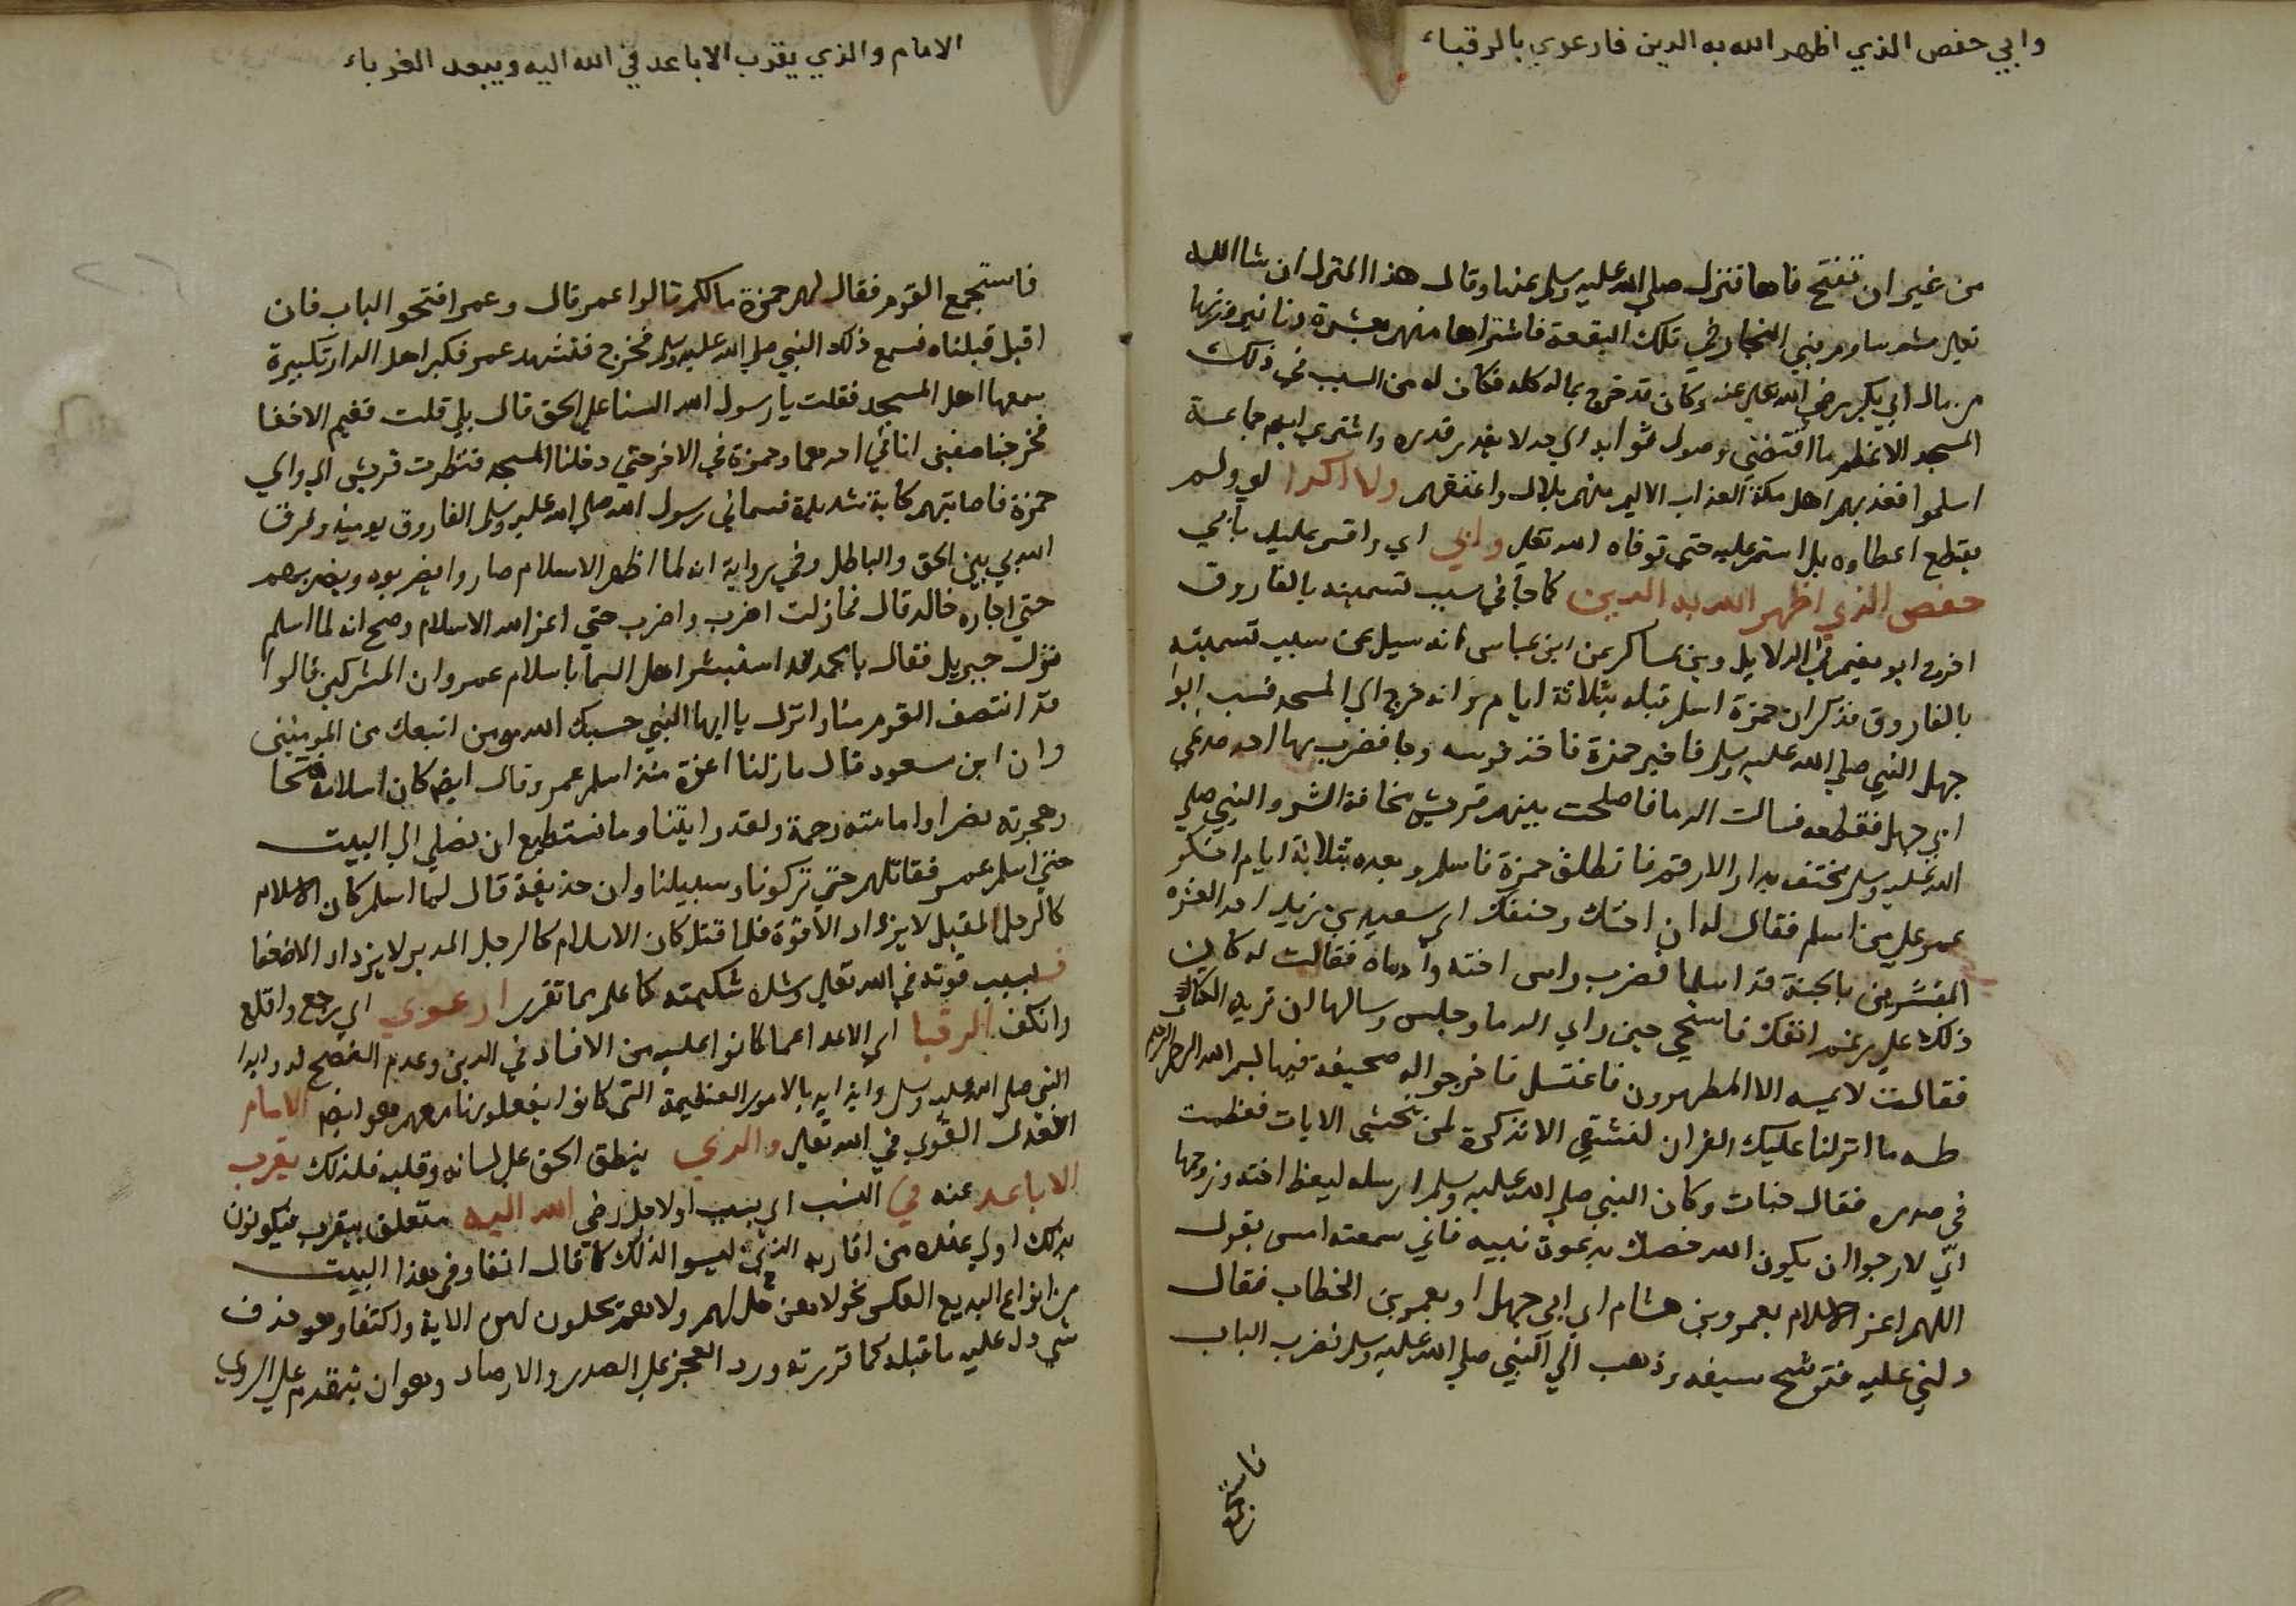 وابي حفص الذي اظهر الله به الدين فارعوي بالرقباء
من غير ان تفتح فاها فنزل صلي الله عليه وسلم عنها وقال هذا المنزل ان شا الله
تعالي ثم ساوم بني النجار في تلك البقعة فاشتراها منهم بعشرة دنانير وزنها
من مال ابي بكر رضي الله تعالي عنه وكان قد خرج بماله كله فكان له من السبب في ذلك
المسجد الاعظم ما اقتضي وصول ثوابه الي حد لا يقدر قدره واشتري ايضا جماعة
اسلموا فعذبهم اهل مكة العذاب الاليم منهم بلال واعتقهم ولا اكدا اي ولم
يقطع اعطاوه بل استمر عليه حتي توفاه الله تعالي وابي اي واقسم عليك بابي
حفص الذي اظهر الله به الدين كما جا في سبب تسميته بالفاروق
اخرج ابو نعيم في الدلايل وبن عساكر عن ابن عباس انه سيل عن سبب تسميته
بالفاروق فذكر ان حمزة اسلم قبله بثلاثة ايام وانه خرج الي المسجد فسب ابوا
جهل النبي صلي الله عليه وسلم فاخبر حمزة فاخذ قوسه وجا فضرب بها احد صدغي
ابي جهل فقطعه فسالت الدما فاصلحت بينهم قريش مخافة الشر والنبي صلي
الله عليه وسلم مختف بدار الارقم فانطلق حمزة فاسلم وبعده بثلاثة ايام انكر
عمر علي من اسلم فقال له ان اختك وختنك اي سعيد بن زيد احد العشرة
المبشرين بالجنة قد اسلما فضرب راس اخته وادماه فقالت له كان
ذلك علي رغم انفك فاستحي حين راي الدما وجلس وسالها ان تريه الكتاب
فقالت لا يمسه الا المطهرون فاغتسل فاخرجوا له صحيفة فيها بسم الله الرحمن الرحيم
طه ما انزلنا عليك القران لتشقي الا تذكرة لمن يخشي الايات فعظمت
في صدره فقال خباب وكان النبي صلي الله عليه وسلم ارسله ليعظ اخته وزوجها
اني لارجوا ان يكون الله خصك بدعوة نبيه فاني سمعته امس يقول
اللهم اعز الاسلام بعمرو بن هشام اي ابي جهل او بعمر بن الخطاب فقال
دلني عليه فتوشح سيفه وذهب الي النبي صلي الله عليه وسلم فضرب الباب
فاستجمع
الامام والذي يقرب الاباعد في الله اليه ويبعد القرباء
فاستجمع القوم فقال لهم حمزة مالكم قالوا عمر قال وعمر افتحوا الباب فان
اقبل قبلناه فسمع ذلك النبي صلي الله عليه وسلم فخرج فتشهد عمر فكبر اهل الدار تكبيرة
سمعها اهل المسجد فقلت يا رسول الله السنا علي الحق قال بلي قلت ففيم الاخفا
فخرجنا صفين انا في احدهما وحمزة في الاخر حتي دخلنا المسجد فنظرت قريش الي والي
حمزة فاصابتهم كابة شديدة فسماني رسول الله صلي الله عليه وسلم الفاروق يوميذ وفرق
الله بي بين الحق والباطل وفي رواية انه لما اظهر الاسلام صاروا يضربوه ويضربهم
حتي اجاره خاله قال فما زلت اضرب واضرب حتي اعز الله الاسلام وصح انه لما اسلم
نزل جبريل فقال يا محمد لقد استبشر اهل السما باسلام عمر وان المشركين قالوا
قد انتصف القوم منا وانزل يا ايها النبي حسبك الله ومن اتبعك من المومنين
وان ابن مسعود قال ما زلنا اعزة منذ اسلم عمر وقال ايضا كان اسلامه فتحا
وهجرته نصرا وامامته رحمة ولقد رايتنا وما نستطيع ان نصلي الي البيت
حتي اسلم عمر فقاتلهم حتي تركونا وسبيلنا وان حذيفة قال لما اسلم كان الاسلام
كالرجل المقبل لا يزداد الا قوة فلما قتل كان الاسلام كالرجل المدبر لا يزداد الا ضعفا
فبسبب قوته في الله تعالي وشدة شكيمته كما علم مما تقرر ارعوي اي رجع واقلع
وانكف الرقبا اي الاعدا عما كانوا عليه من الافساد في الدين وعدم النصح له وايذا
النبي صلي الله عليه وسلم وايذايه بالامور العظيمة التي كانوا يفعلونها معهم وهو ايضا الامام
العدل القوي في الله تعالي والذي ينطق الحق علي لسانه وقلبه فلذلك يقرب
الاباعد عنه في النسب اي ينسب اولا مل رضي الله اليه متعلق بيقرب فيكونون
بذلك اولي عنده من اقاربه الذين ليسوا لذلك كما قال انفا وفي هذا البيت
من انواع البديع العكس نحو لا هن حل لهم ولا هم يحلون لهن الاية واكتفا وهو حذف
شي دل عليه ما قبله كما قررته ورد العجز علي الصدر والارصاد وهو ان يتقدم علي الروي